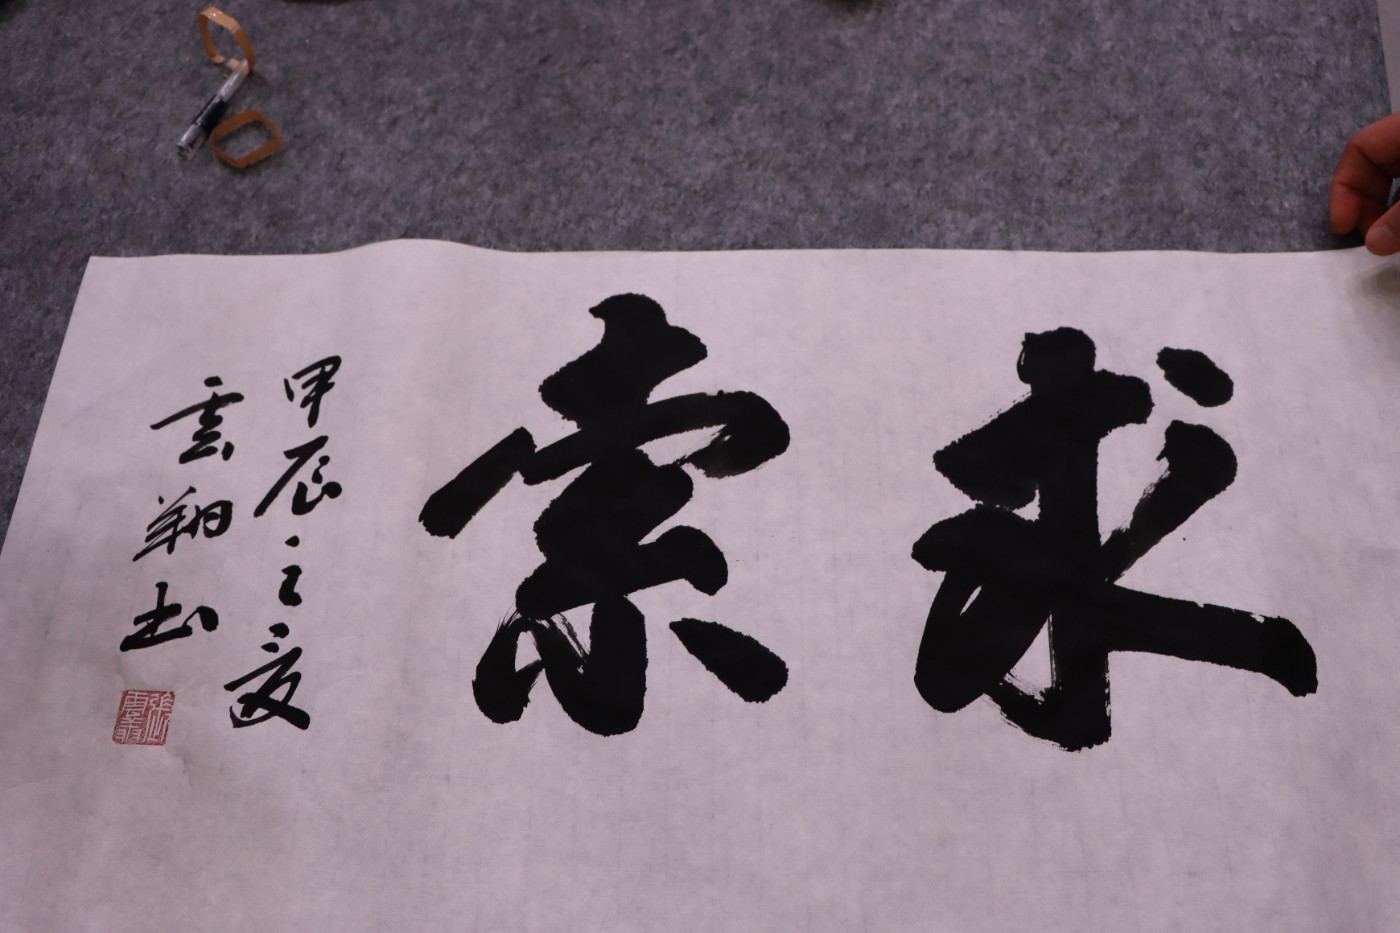 求索
甲辰之夏
雲翔书